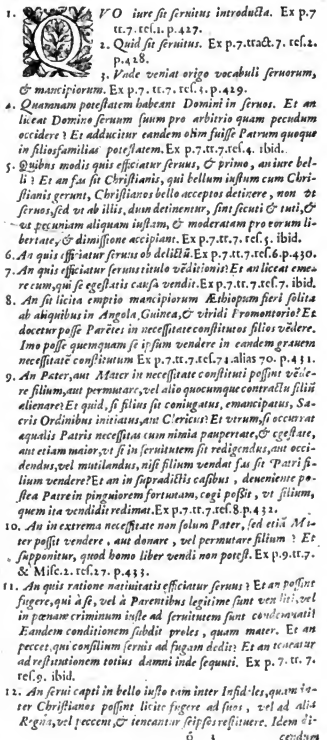 1. QVO iure sit seruitus introducta. Ex p.7
tr.7. res.1. p.427.
2. Quid sit seruitus. Ex p.7.tract.7. res.2.
p.428.
3. Vnde veniat origo vocabuli seruorum,
& mancipiorum. Ex p.7. tr.7. res.3. p.429.
4. Quamnam potestatem habeant Domini in seruos. Et an
liceat Domino seruum suum pro arbitrio quam pecudum
occidere? Et adducitur eandem olim fuisse Patrum quoque
in filiosfamilias potestatem. Ex p.7.tr.7.res.4. ibid.
5. Quibus modis quis efficiatur seruus, & primo, an iure bel-
li? Et an fas sit Christianis, qui bellum iustum cum Chri-
stianis gerunt, Christianos bello acceptos detinere, non vt
seruos, sed vt ab illis, dum detinentur, sint secuti & tuti, &
vt pecuniam aliquam iustam, & moderatam pro eorum li-
bertate, & dimissione accipiant. Ex p.7.tr.7.res.5. ibid.
6. An quis efficiatur seruus ob delictũ. Ex p.7.tr.7.res.6.p.430.
7. An quis efficiatur seruus titulo vẽditionis? Et an liceat eme-
re eum, qui se egestatis causa vendit. Ex p.7.tr.7.res.7. ibid.
8. An sit licita emptio mancipiorum Æthiopum fieri solita
ab aliquibus in Angola, Guinea, & viridi Promontorio? Et
docetur posse Parẽtes in necessitate constitutos filios vẽdere.
Imo posse quemquam se ipsum vendere in eandem grauem
necessitatẽ constitutum Ex p.7.tr.7.res.71.alias 70. p.431.
9. An Pater, aut Mater in necessitate constituti possint vẽde-
re filium, aut permutare, vel alio quocumque contractu filiũ
alienare? Et quid, si filius sit coniugatus, emancipatus, Sa-
cris Ordinibus initiatus, aut Clericus? Et vtrum, si occurrat
æqualis Patris necessitas cum nimia paupertate, & egestate,
aut etiam maior, vt si in seruitutem sit redigendus, aut occi-
dendus, vel mutilandus, nisi filium vendat fas sit Patri fi-
lium vendere? Et an in supradictis casibus, deueniente po-
stea Patre in pinguiorem fortunam, cogi possit, vt filium,
quem ita vendidit redimat. Ex p.7.tr.7.res.8.p.432.
10. An in extrema necessitate non solum Pater, sed etiã Ma-
ter possit vendere, aut donare, vel permutare filium? Et
supponitur, quod homo liber vendi non potest. Ex p.9.tr.7.
& Misc.2. res.27. p.433.
11. An quis ratione natiuitatis efficiatur seruus? Et an possint
fugere, qui à se, vel à Parentibus legitime sunt venditi, vel
in pœnam criminum iuste ad seruitutem sunt condemnati?
Eandem conditionem subdit proles, quam mater. Et an
peccet, qui consilium seruis ad fugam dedit? Et an teneatur
ad restitutionem totius damni inde sequuti. Ex p. 7. tr. 7.
res.9. ibid.
12. An serui capti in bello iusto tam inter Infideles, quam in-
ter Christianos possint licite fugere ad suos, vel ad alia
Regna, vel peccent, & teneantur seipsos restituere. Idem di-
cendum